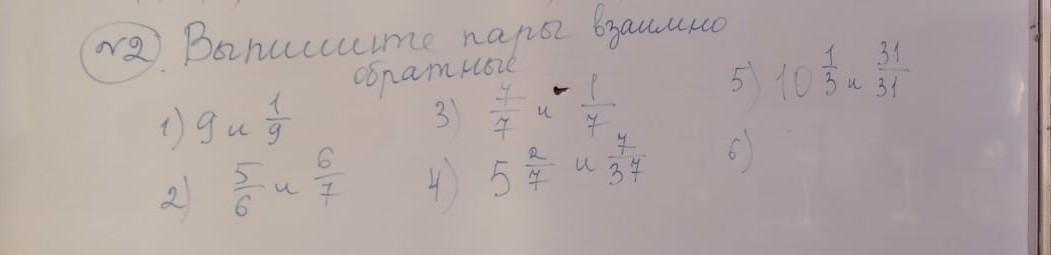 №2. Выпишите пары взаимно
обратные
1) 9 и 1/9
2) 5/6 и 6/7
3) 7/7 и 1/7
4) 5 2/7 и 7/37
5) 10 1/3 и 31/31
6)